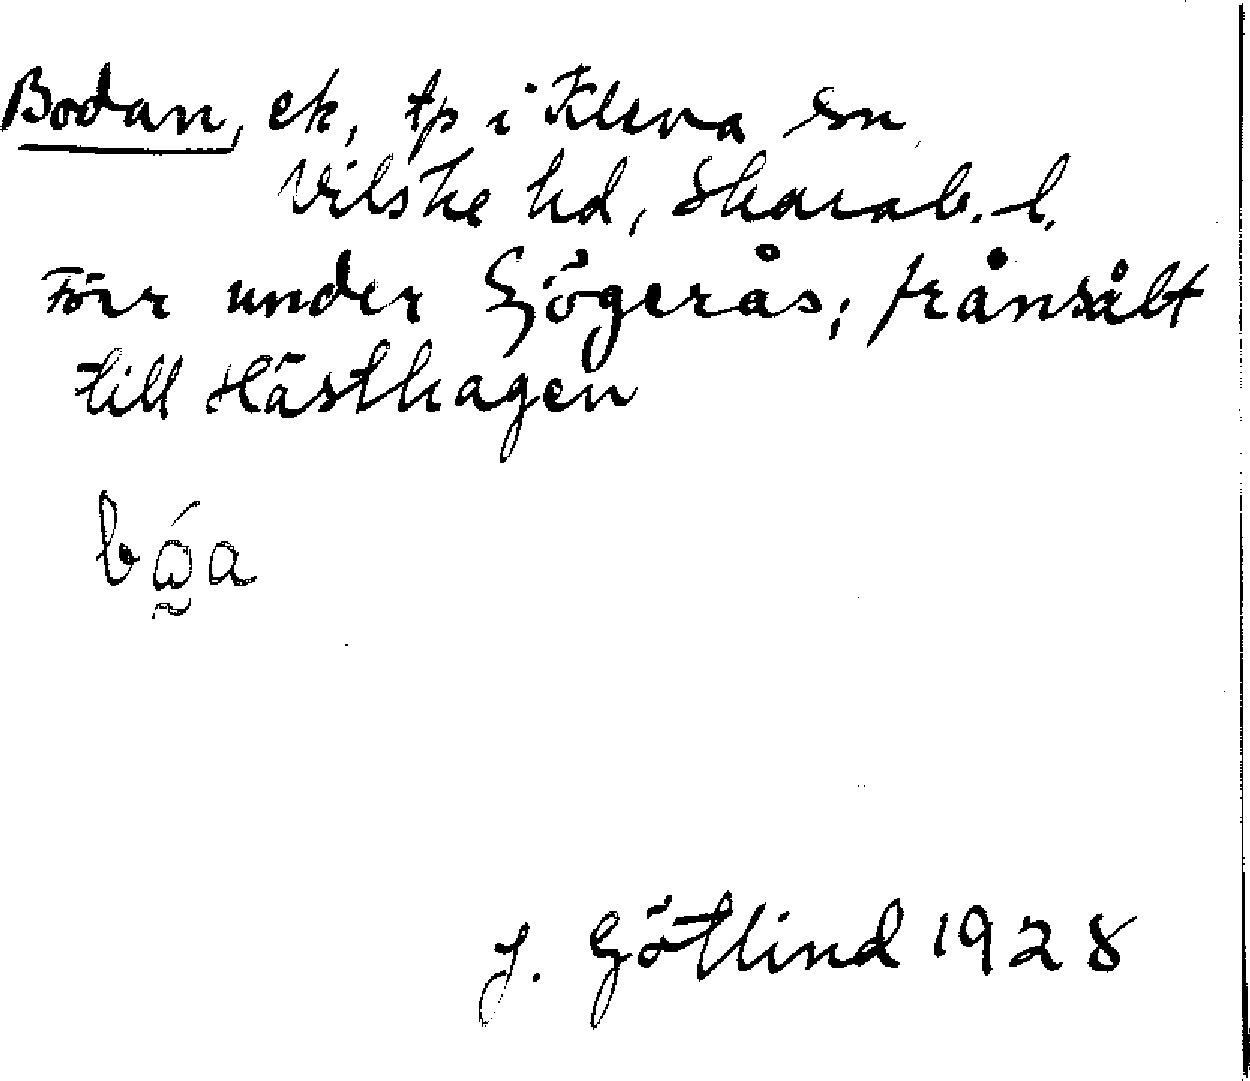 Bodan, ek, tp i Kleva sn
Vilske hd, Skarab. l.
Förr under Gjögerås; frånsålt
till Hästhagen
bώ̰a
J. Götlind 1928